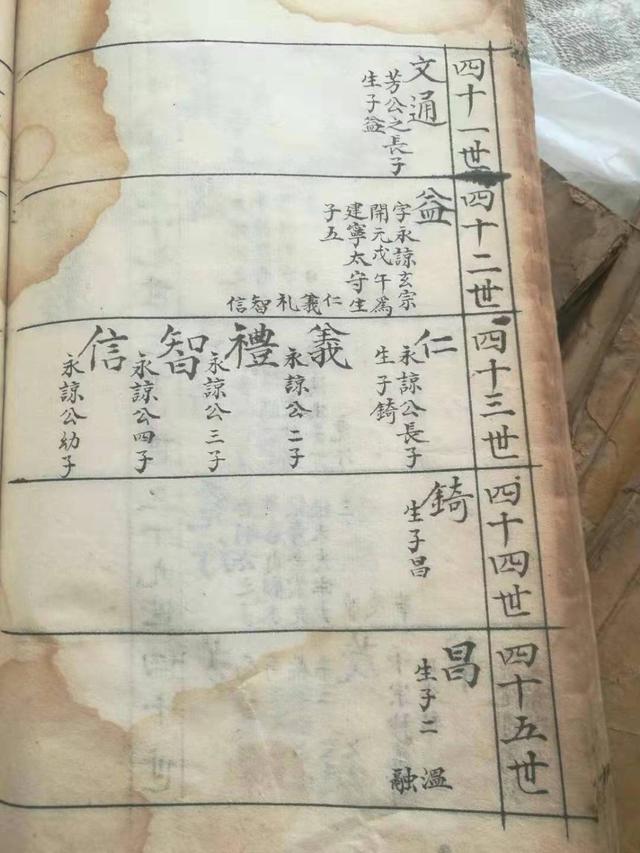 四十一世
文通
芳公之長子
生子益
四十二世
益
字永諒玄宗
開元戊午爲
建寧太守生
子五
仁義礼智信
四十三世
仁
永諒公長子
生子錡
義
永諒公二子
禮
永諒公三子
智
永諒公四子
信
永諒公幼子
四十四世
錡
生子昌
四十五世
昌
生子二
溫融